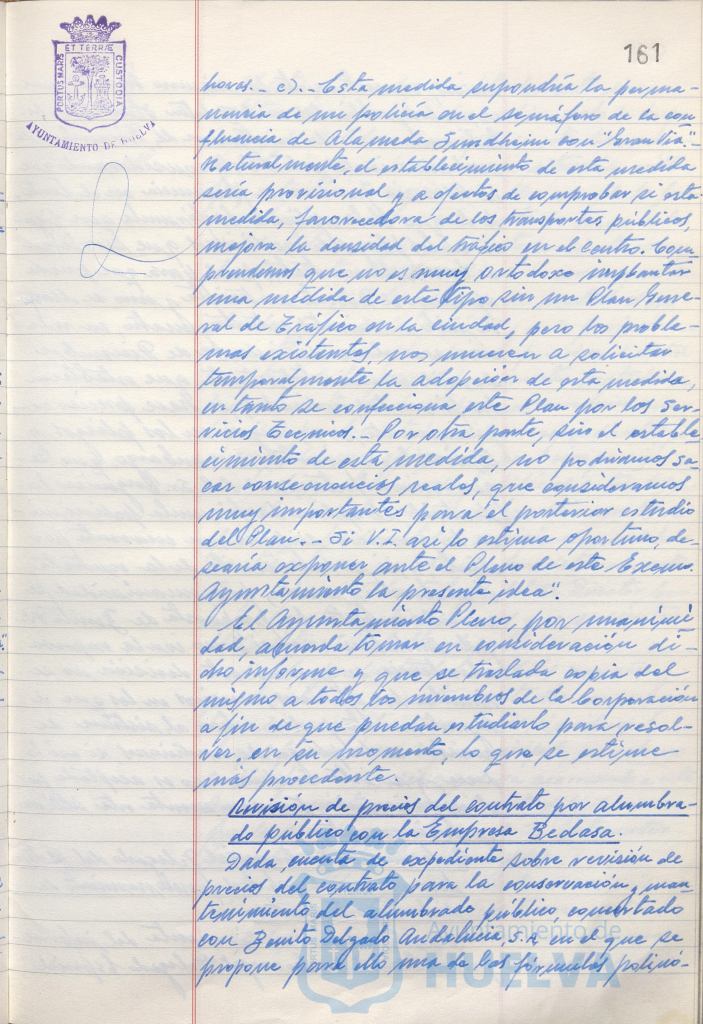 161
PORTUS MARIS ET TERRÆ CUSTODIA
AYUNTAMIENTO DE HUELVA
horas.- c).- Esta medida supondría la perma-
nencia de un policía en el semáforo de la con-
fluencia de Alameda Sundheim con "Gran Vía".-
Naturalmente, el establecimiento de esta medida
sería provisional y a efectos de comprobar si esta
medida, favorecedora de los transportes públicos,
mejora la densidad del tráfico en el centro. Com-
prendemos que no es muy ortodoxo implantar
una medida de este tipo sin un Plan Gene-
ral de Tráfico en la ciudad, pero los proble-
mas existentes, nos mueven a solicitar
temporalmente la adopción de esta medida,
en tanto se confecciona este Plan por los Ser-
vicios Técnicos.- Por otra parte, sin el estable-
cimiento de esta medida, no podríamos sa-
car consecuencias reales, que consideramos
muy importantes para el posterior estudio
del Plan.- Si V.I. así lo estima oportuno, de-
searía exponer ante el Pleno de este Excmo.
Ayuntamiento la presente idea".
El Ayuntamiento Pleno, por unanimi
dad, acuerda tomar en consideración di-
cho informe y que se traslada copia del
mismo a todos los miembros de la Corporación
a fin de que puedan estudiarlo para resol-
ver, en su momento, lo que se estime
más procedente.
Revisión de precios del contrato por alumbra-
do público con la Empresa Bedasa.
Dada cuenta de expediente sobre revisión de
precios del contrato para la conservación y man-
tenimiento del alumbrado público, concertado
con Benito Delgado Andalucía, S.A. en el que se
propone para ello una de las fórmulas polinó-
Ayuntamiento de
HUELVA